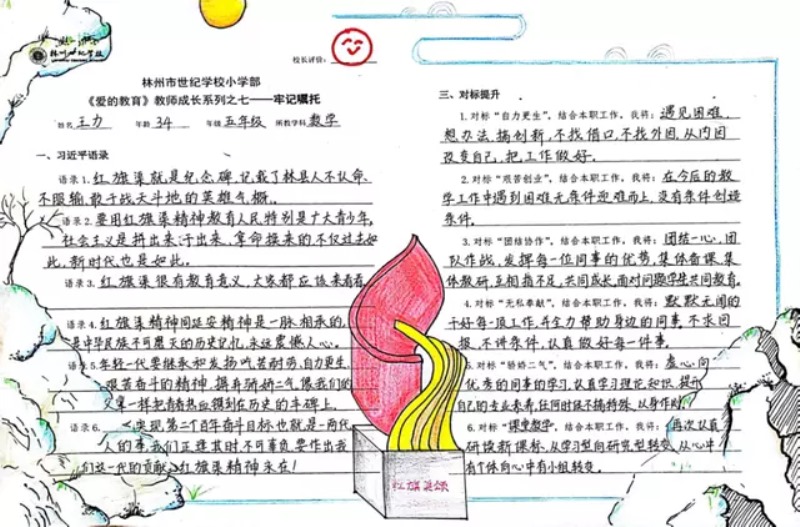 林州世纪学校
校长评价：
林州市世纪学校小学部
《爱的教育》教师成长系列之七——牢记嘱托
姓名 王力 年龄 34 年级 五年级 所教学科 数学
一、习近平语录
语录1. 红旗渠就是纪念碑,记载了林县人不认命、
不服输,敢于战天斗地的英雄气概。
语录2. 要用红旗渠精神教育人民,特别是广大青少年,
社会主义是拼出来,干出来,拿命换来的,不仅过去如
此,新时代也是如此。
语录3. 红旗渠很有教育意义,大家都应该来看看
语录4. 红旗渠精神同延安精神是一脉相承的,
是中华民族不可磨灭的历史记忆,永远震撼人心。
语录5. 年轻一代要继承和发扬吃苦耐劳,自力更生、
艰苦奋斗的精神,摒弃骄娇二气,像我们的
父辈一样把青春热血镌刻在历史的丰碑上.
语录6. 实现第二个百年奋斗目标也就是一两代
人的事,我们正逢其时,不可辜负,要作出我
们这一代的贡献。红旗渠精神永在!
红旗渠颂
三、对标提升
1. 对标“自力更生”，结合本职工作，我将：遇见困难,
想办法,搞创新,不找借口,不找外因,从内因
改变自己,把工作做好.
2. 对标“艰苦创业”，结合本职工作，我将：在今后的教
学工作中遇到困难无条件迎难而上,没有条件创造
条件.
3. 对标“团结协作”，结合本职工作，我将：团结一心,团
队作战,发挥每一位同事的优势,集体备课,集
体教研,互相指不足,共同成长,面对问题学生共同教育.
4. 对标“无私奉献”，结合本职工作，我将：默默无闻的
干好每一项工作,并全力帮助身边的同事,不求回
报,不讲条件,认真做好每一件事.
5. 对标“骄娇二气”，结合本职工作，我将：虚心向
优秀的同事的学习,认真学习理论知识,提升
自己的专业素养,任何时候不搞特殊,以身作则.
6. 对标“课堂教学”，结合本职工作，我将：再次认真
研读新课标,从学习型向研究型转变,从心中
有个体向心中有小组转变.